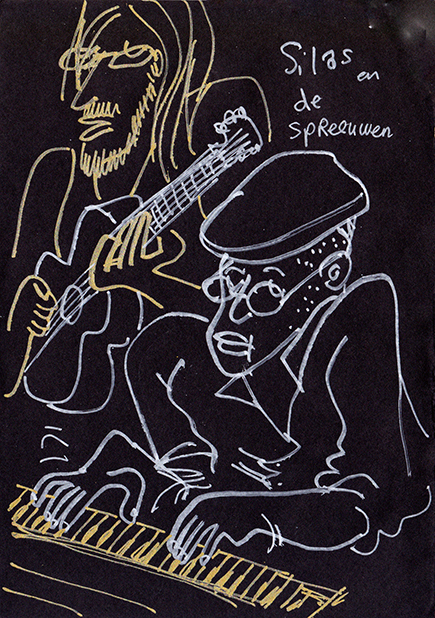 Silas en
de
spreeuwen